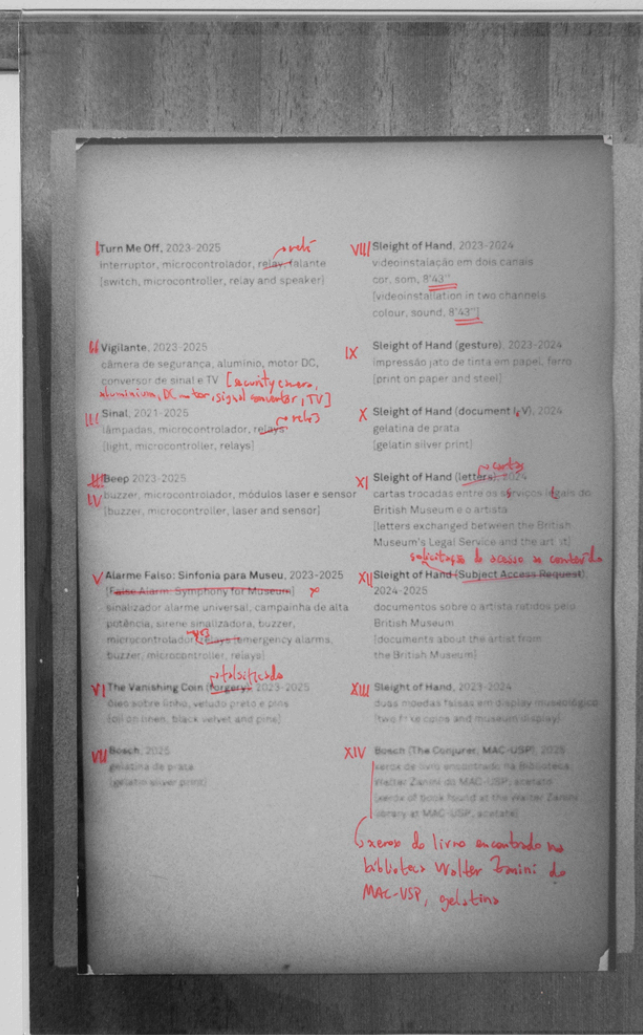 I Turn Me Off, 2023-2025
relé
interruptor, microcontrolador, relay, falante
[switch, microcontroller, relay and speaker]
II Vigilante, 2023-2025
câmera de segurança, alumínio, motor DC,
conversor de sinal e TV [security camera,
aluminium, DC motor, signal converter, TV]
III Sinal, 2021-2025
relés
lâmpadas, microcontrolador, relays
[light, microcontroller, relays]
III Beep 2023-2025
IV buzzer, microcontrolador, módulos laser e sensor
[buzzer, microcontroller, laser and sensor]
V Alarme Falso: Sinfonia para Museu, 2023-2025
[False Alarm: Symphony for Museum]
sinalizador alarme universal, campainha de alta
potência, sirene sinalizadora, buzzer,
microcontrolador, relays [emergency alarms,
buzzer, microcontroller, relays]
falsificado
VI The Vanishing Coin (forgery), 2023-2025
óleo sobre linho, veludo preto e pins
[oil on linen, black velvet and pins]
VII Bosch, 2025
gelatina de prata
[gelatin silver print]
VIII Sleight of Hand, 2023-2024
videoinstalação em dois canais
cor, som, 8'43''
[videoinstallation in two channels
colour, sound, 8'43'']
IX Sleight of Hand (gesture), 2023-2024
impressão jato de tinta em papel, ferro
[print on paper and steel]
X Sleight of Hand (document I, V), 2024
gelatina de prata
[gelatin silver print]
cartas
XI Sleight of Hand (letters), 2024
cartas trocadas entre os serviços legais do
British Museum e o artista
[letters exchanged between the British
Museum's Legal Service and the art ist]
solicitação de acesso ao conteúdo
XII Sleight of Hand (Subject Access Request),
2024-2025
documentos sobre o artista retidos pelo
British Museum
[documents about the artist from
the British Museum]
XIII Sleight of Hand, 2023-2024
duas moedas falsas em display museológico
[two fake coins and museum display]
XIV Bosch (The Conjurer, MAC-USP), 2025
xerox de livro encontrado na Biblioteca
Walter Zanini do MAC-USP, acetato
[xerox of book found at the Walter Zanini
library at MAC-USP, acetate]
xerox do livro encontrado na
biblioteca Walter Zanini do
MAC-USP, gelatina